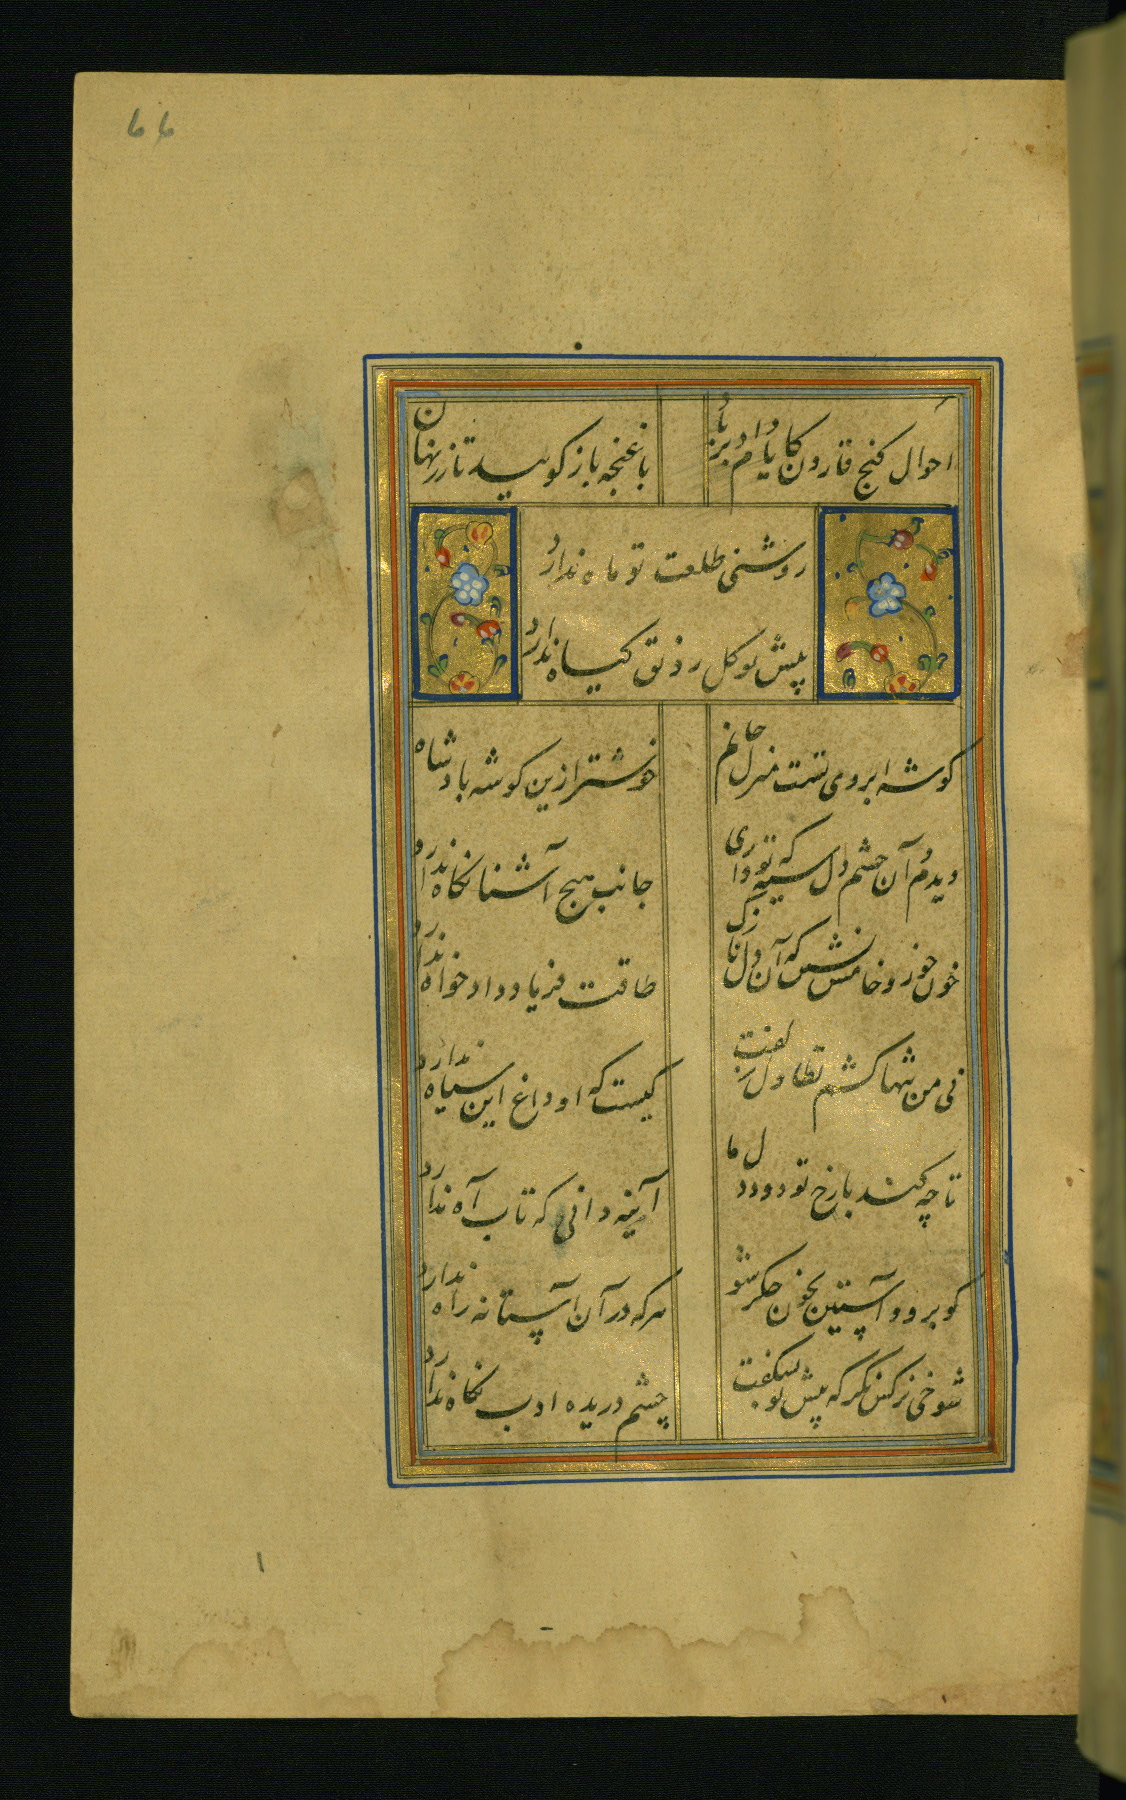 ۶۶
احوال کنج قارون کایام داد بر باد
با غنچه باز کویید تا زر نهان
روشنی طلعت تو ماه ندارد
پیش تو کل رونق کیاه ندارد
کوشه ابروی تست منزل جانم
خوشتر ازین کوشه بادشاه
دیدم آن چشم دل سیه که تو داری
جانب هیچ آشنا نکاه ندارد
خون خور و خامش نشین که آن دل نازک
طاقت فریاد دادخواه ندارد
نی من تنها کشم تطاول زلفت
کیست که او داغ این سیاه ندارد
تا چه کند با رخ تو دود دل ما
آینه دانی که تاب آه ندارد
کو برو و آستین بخون جکر شو
هر که در آن آستانه راه ندارد
شوخی نرکس نکر که پیش تو بشکفت
چشم دریده ادب نکاه ندارد